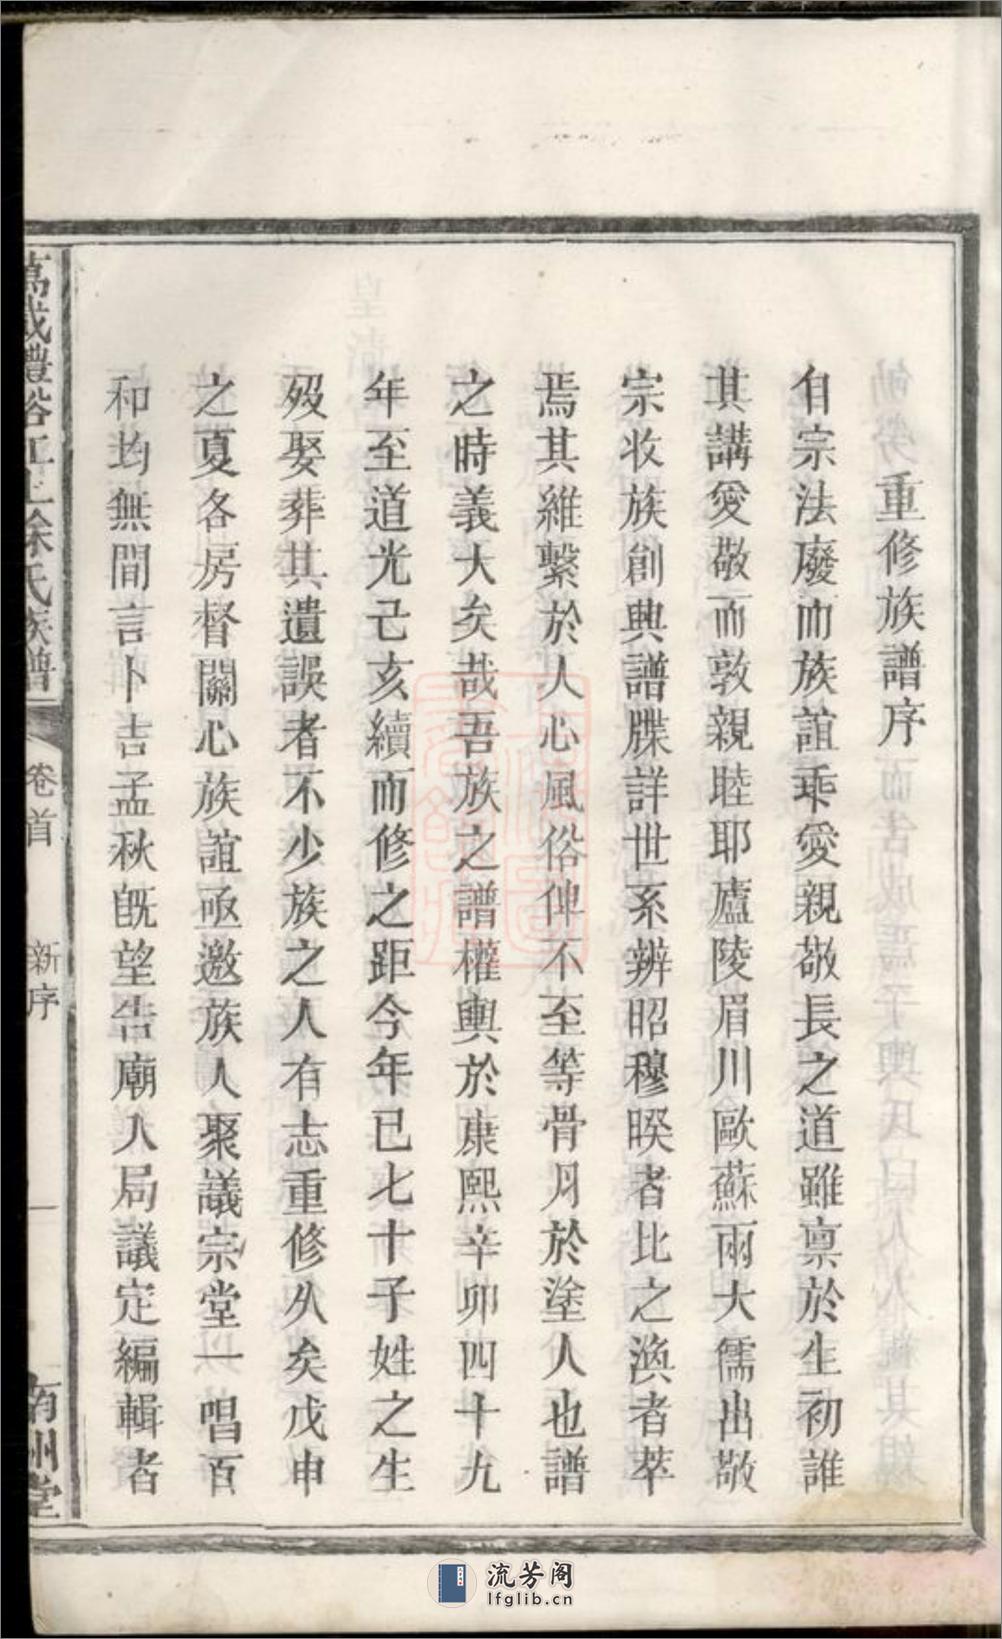 重修族譜序
自宗法廢而族誼乖愛親敬長之道雖禀於生初誰
其講愛敬而敦親睦耶廬陵眉川歐蘇兩大儒出敬
宗收族創興譜牒詳世系辨昭穆暌者比之渙者萃
焉其維繫於人心風俗俾不至等骨月於塗人也譜
之時義大矣哉吾族之譜權輿於康熙辛卯四十九
年至道光己亥續而修之距今年已七十子姓之生
歿娶葬其遺誤者不少族之人有志重修久矣戊申
之夏各房督關心族誼亟邀族人聚議宗堂一唱百
和均無間言卜吉孟秋旣望告廟入局議定編輯者
萬載澧谿江上徐氏族譜
卷首
新序
一
南州堂
流芳阁
lfglib.cn